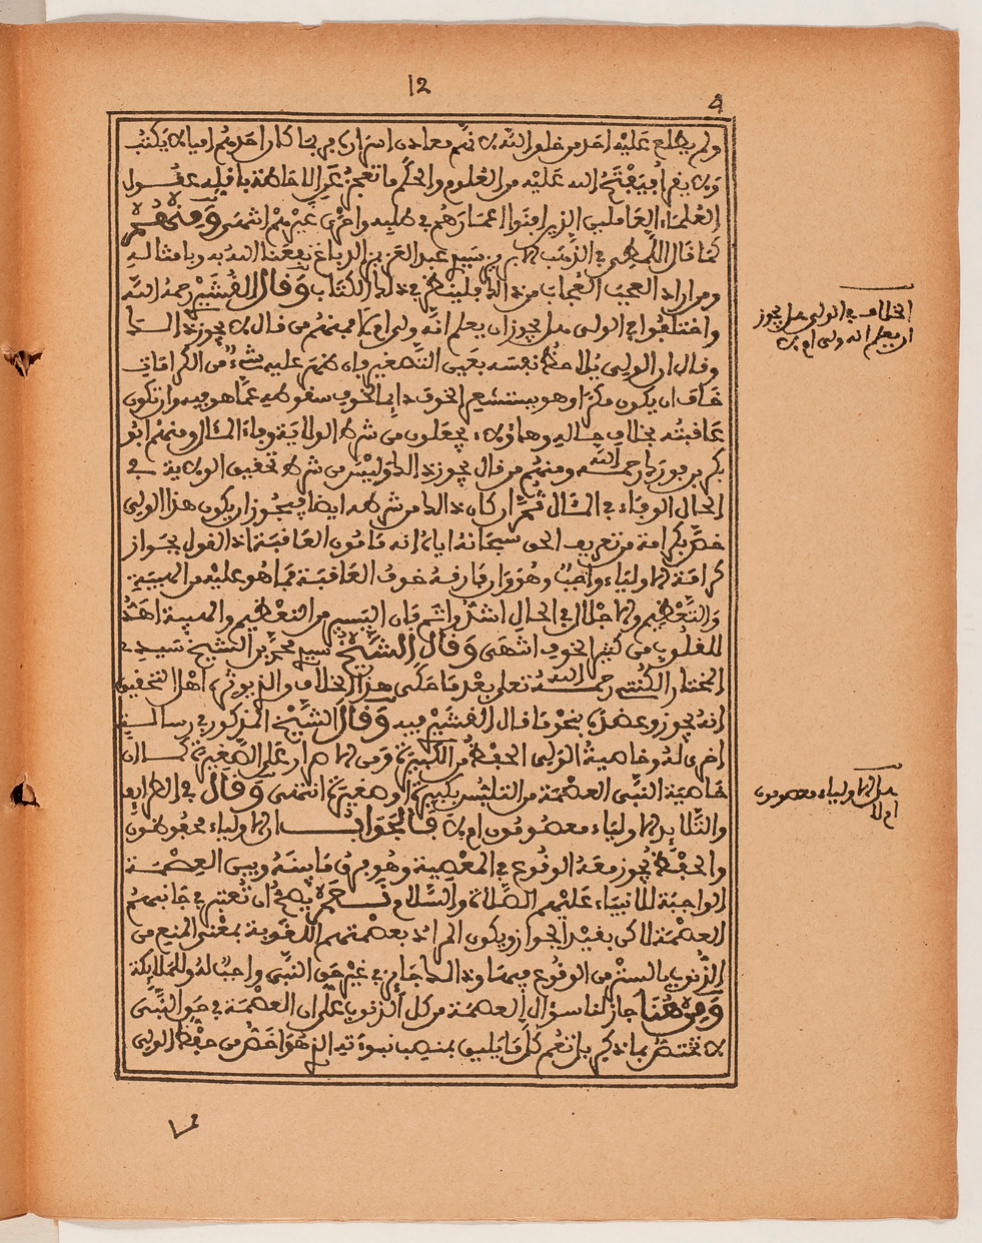 12
4
ولم يطلع عليه احد من خلق الله لا نهم معادن اسراره من بها كان احدهم اميا لا يكتب
ولا يقرأ فيفتح الله عليه من العلوم والحكم ما تعجز عن الاحاطة باقله عقول
العلماء العاملين الذين افنوا اعمارهم في طلبه واخرى غيرهم انتهى ومنهم
كما قال اللمطي في الذهب الابريز سيد عبد العزيز الدباغ نفعنا الله به وبامثاله
ومن اراد العجب العجاب من ذلك فلينظر في ذلك الكتاب وقال القشيري رحمه الله
واختلفوا في الولي هل يجوز ان يعلم انه ولي ام لا فمنهم من قال لا يجوز ذلك
وقال ان الولي يلاحظ نفسه بعين التصغير وان ظهر عليه شيء من الكرامات
خاف ان يكون مكرا وهو يستشعر الخوف دايما لخوف سقوطه عما هو فيه وان تكون
عاقبته بخلاف حاله وهاؤلاء يجعلون من شرط الولاية وفاء المئال ومنهم ابو
بكر بن فورك رحمه الله ومنهم من قال يجوز ذلك وليس من شرط تحقيق الولاية في
الحال الوفاء في المئال ثم ان كان ذلك من شرطه ايضا فيجوز ان يكون هذا الولي
خص بكرامة من تعريف الحق سبحانه اياه انه مامون العاقبة اذ القول بجواز
كرامة الاولياء واجب وهو وان فارقه خوف العاقبة فما هو عليه من الهيبة
والتعظيم والاجلال في الحال اشد واتم فان اليسير من التعظيم والهيبة اهد
للقلوب من كثير الخوف انتهى وقال الشيخ سيد محمد بن الشيخ سيد
المختار الكنتي رحمه الله تعلى بعد ما حكى هذا الخلاف والذي عند اهل التحقيق
انه يجوز وعضده بنحو ما قال القشيري فيه وقال الشيخ المذكور في رسالة
اخرى له وخاصية الولي الحفظ من الكبيرة ومن الاصرار على الصغيرة كما ان
خاصية النبي العصمة من التلبس بكبيرة او صغيرة انتهى وقال في الطرايف
والتلايد الاولياء معصومون ام لا فالجواب ان الاولياء محفوظون
والحفظ يجوز معه الوقوع في المعصية وهو فرق ما بينه وبين العصمة
الواجبة للانبياء عليهم الصلاة والسلام نعم يصح ان تعتبر في جانبهم
العصمة لاكن بقيد الجواز ويكون المراد بعصمتهم اللغوية بمعنى المنع من
الذنوب بالستر من الوقوع فيها وذلك جايز في غير حق النبي واجب له وللملائكة
ومن هنا جاز لنا سؤال العصمة من كل الذنوب على ان العصمة في حق النبي
لا تختص بما ذكر بل تعم كل ما يليق بمنصب نبوءته الذي هو اخص من حفظ الولي
الخلاف في الولي هل يجوز
ان يعلم انه ولي ام لا
هل الاولياء معصومون
ام لا